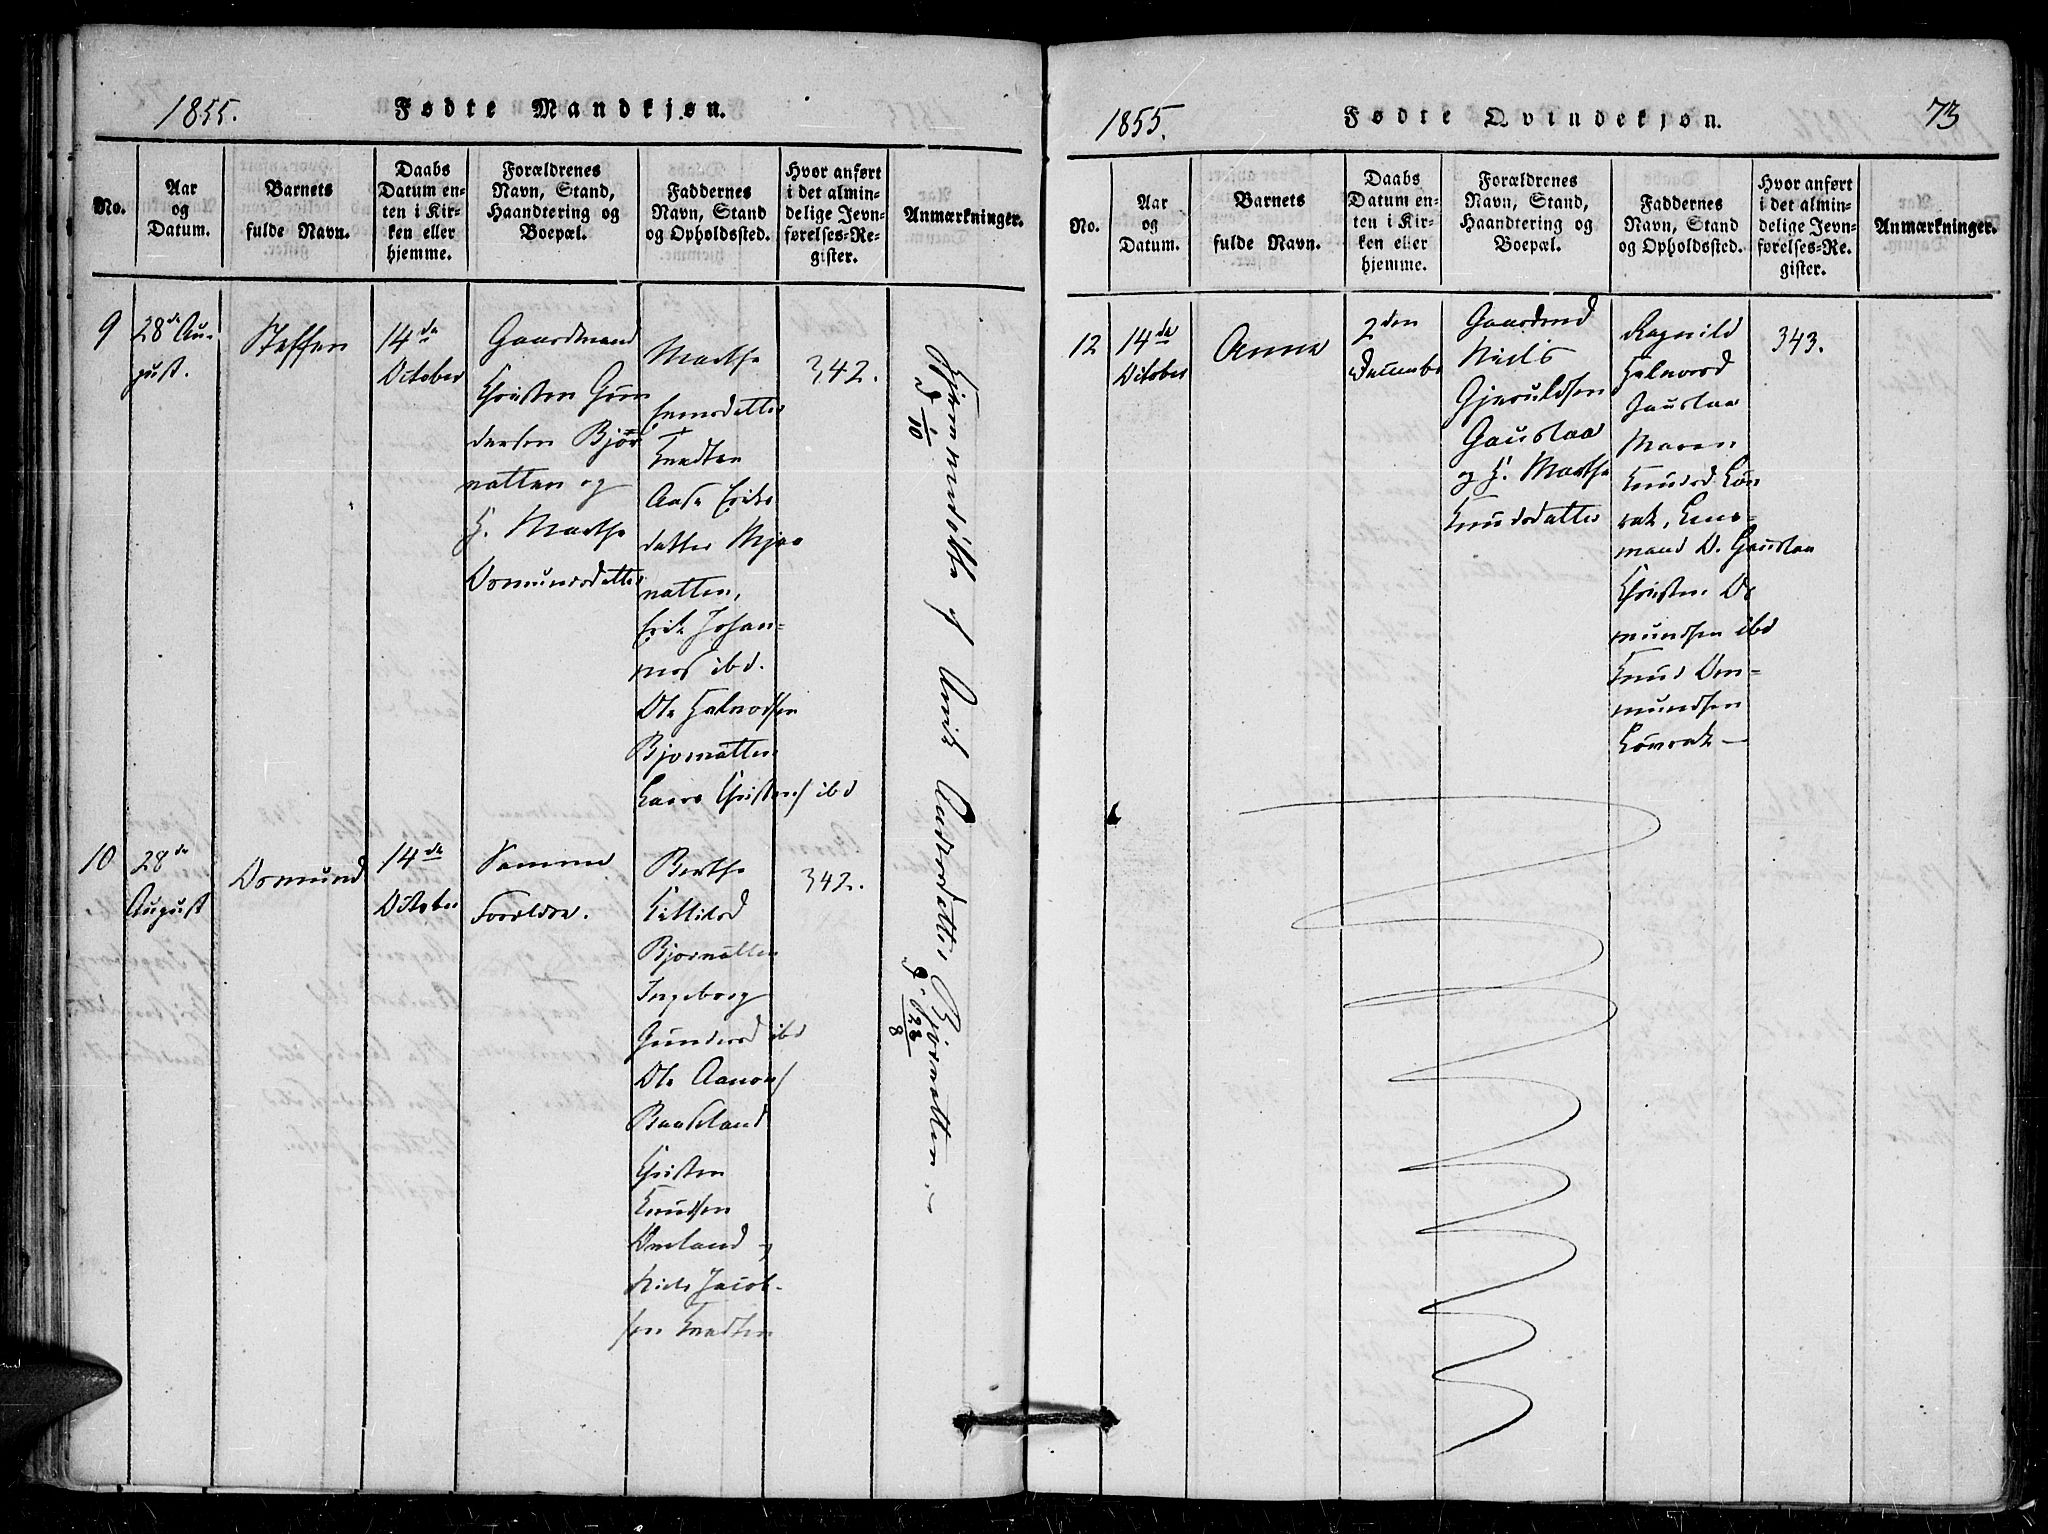 1855.
Fødte Mandkjøn.
No.
Aar
og
Datum.
Barnets
fulde Navn.
Daabs
Datum en-
ten i Kir-
ken eller
hjemme.
Forældrenes
Navn, Stand,
Haandtering og
Boepæl.
Faddernes
Navn, Stand
og Opholdssted.
Hvor anført
i det almin-
delige Jevn-
førelses-Re-
gister.
Anmærkninger.
9
28de Au-
gust.
Steffen
14de
October
Gaardmand
Christen Gun
dersen Bjør
natten og
H. Marthe
Osmundsdatter
Marthe
datter
Aase Eriks
datter
natten,
Erik Johan-
nes ibd.
Ole Halvorsen
Bjornatten
Laurs Christens ibd
342.
Hjemmedøbte af Anne Andersdatter Bjørnatten.
10
28de
August
Osmund
14de
October
Samme
Forældre.
Berthe
Kittilsd
Bjornatten
Ingeborg
Gundersd ibd
Ole Aanons
Baaseland
Christen
Knudsen
Omland
Niels Jacob-
sen
342.
1855.
Fødte Qvindekjøn.
73
No.
Aar
og
Datum.
Barnets
fulde Navn.
Daabs
Datum en-
ten i Kir-
ken eller
hjemme.
Forældrenes
Navn, Stand,
Haandtering og
Boepæl.
Faddernes
Navn, Stand
og Opholdssted.
Hvor anført
i det almin-
delige Jevn-
førelses-Re-
gister.
Anmærkninger.
12
14de
October
Anne
2den
Decembr
Gaardmd
Niels
Gjeruldsen
Gaustaa
og H. Marthe
Knudsdatter
Ragnild
Halvorsd
Gaustaa
Maren
Knudsd
mand O. Gaustaa
Christen Os
mundsen ibd
Knud Om-
mundsen
343.